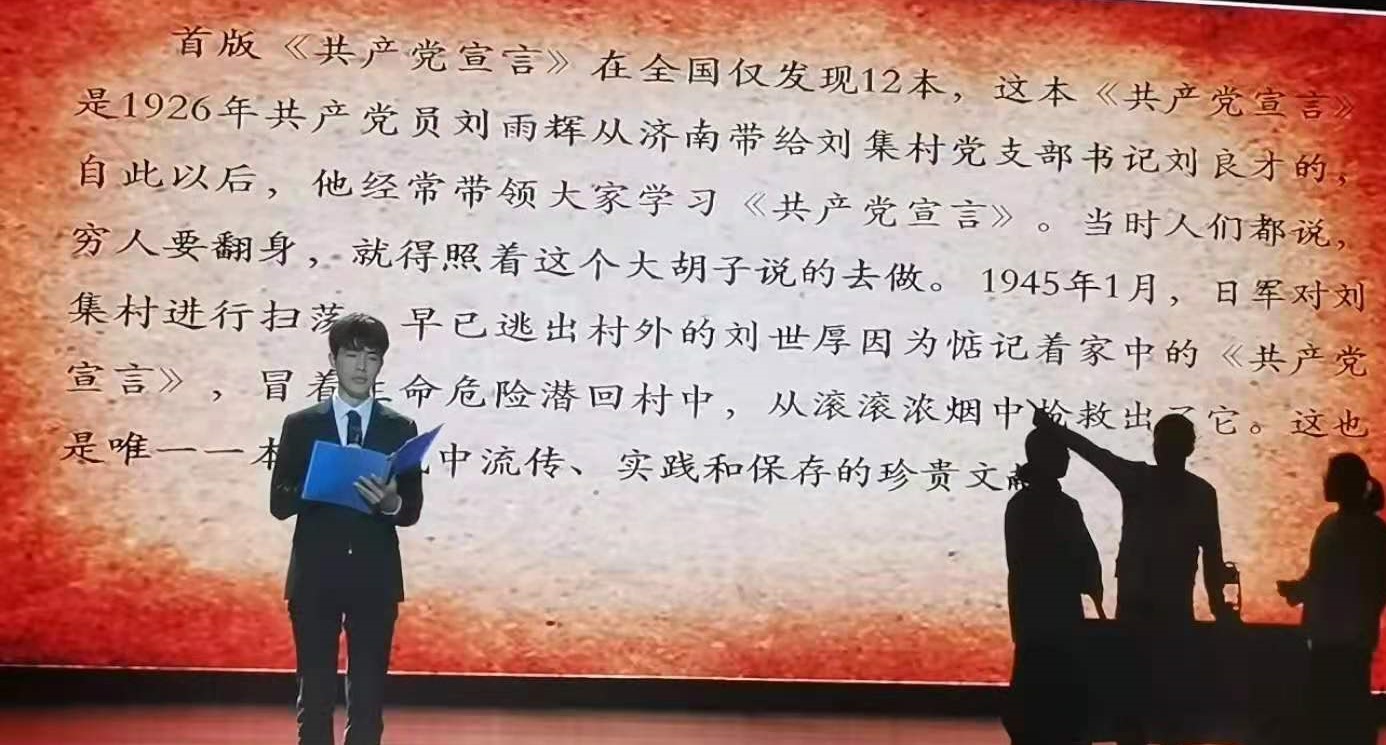 首版《共产党宣言》在全国仅发现12本，这本《共产党宣言》
是1926年共产党员刘雨辉从济南带给刘集村党支部书记刘良才的，
自此以后，他经常带领大家学习《共产党宣言》。当时人们都说，
穷人要翻身，就得照着这个大胡子说的去做。1945年1月，日军对刘
集村进行扫荡 早已逃出村外的刘世厚因为惦记着家中的《共产党
宣言》，冒着生命危险潜回村中，从滚滚浓烟中抢救出了它。这也
是唯一一本 中流传、实践和保存的珍贵文献